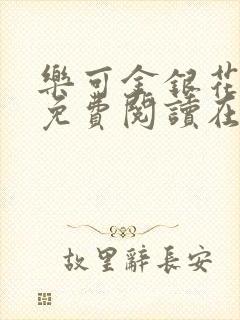 樂可金銀花
免費閱讀在
故里辭長安